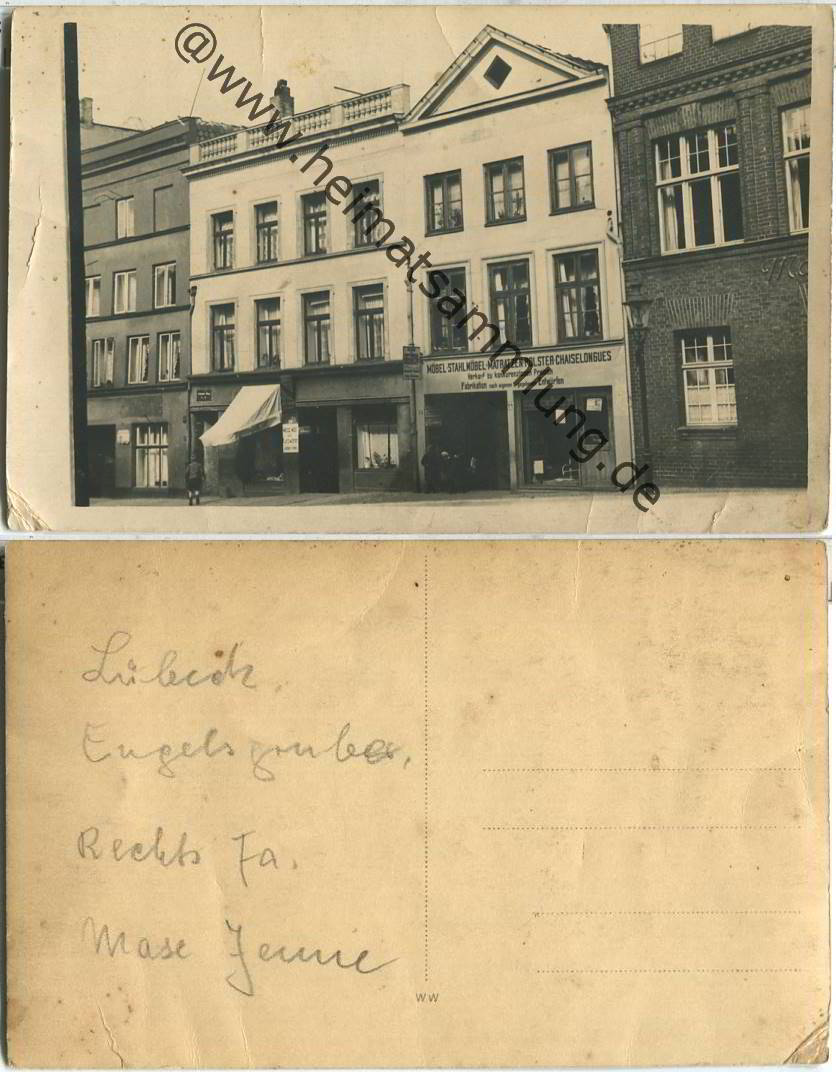 @www.heimatsammlung.de
MÖBEL·STAHLMÖBEL·MATRATZEN POLSTER·CHAISELONGUES
Verkauf zu konkurrenzlosen Preisen
Fabrikation nach eigenen Entwürfen
Lübeck,
Engelsgrube,
Rechts Fa.
Mase Jenne
WW